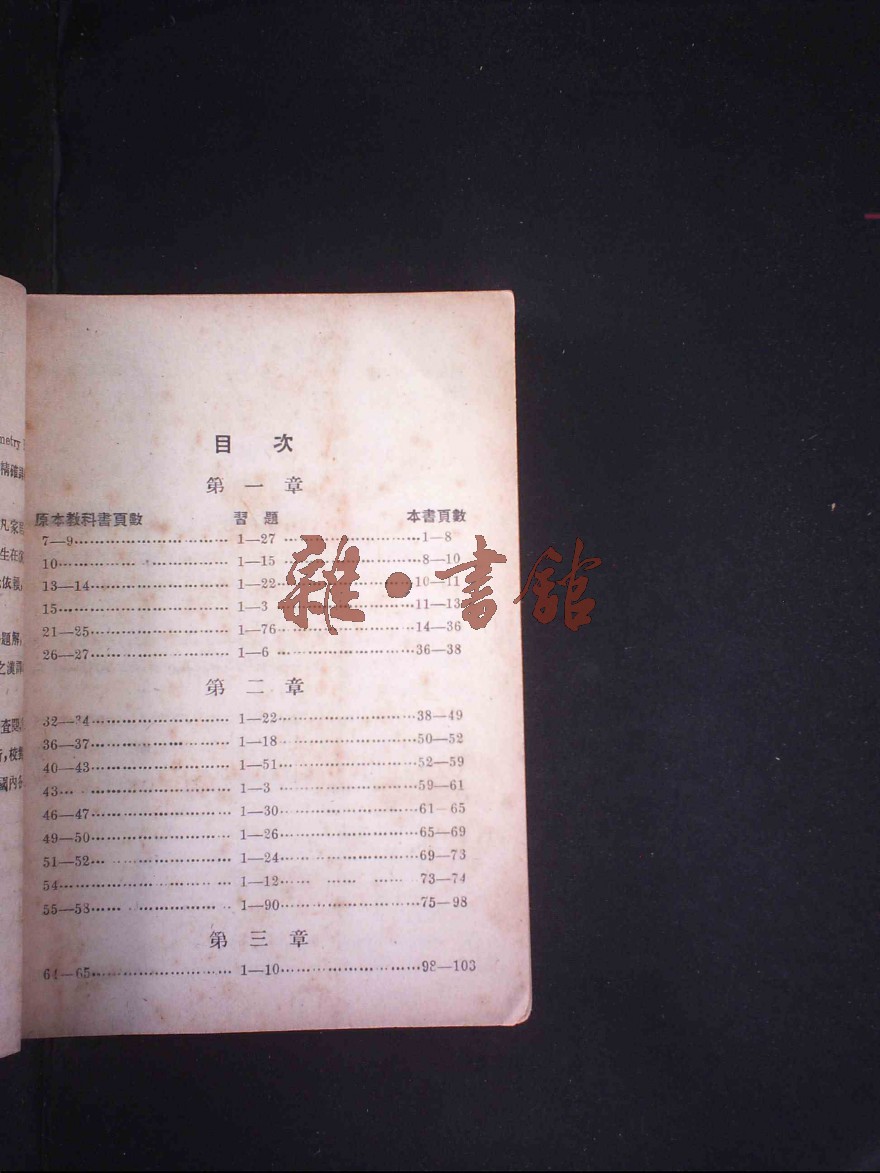 目 次
第 一 章
原本教科書頁數 習 題 本書頁數
7—9 1—27 1—8
10 1—15 8—10
13—14 1—22 10—11
15 1—3 11—13
21—25 1—76 14—36
26—27 1—6 36—38
第 二 章
32—34 1—22 38—49
36—37 1—18 50—52
40—43 1—51 52—59
43 1—3 59—61
46—47 1—30 61—65
49—50 1—26 65—69
51—52 1—24 69—73
54 1—12 73—74
55—58 1—90 75—98
第 三 章
64—65 1—10 98—103
雜·書館
metry
精確
凡家
生在
依據
題解
之漢譯
查閱
行,校
國內